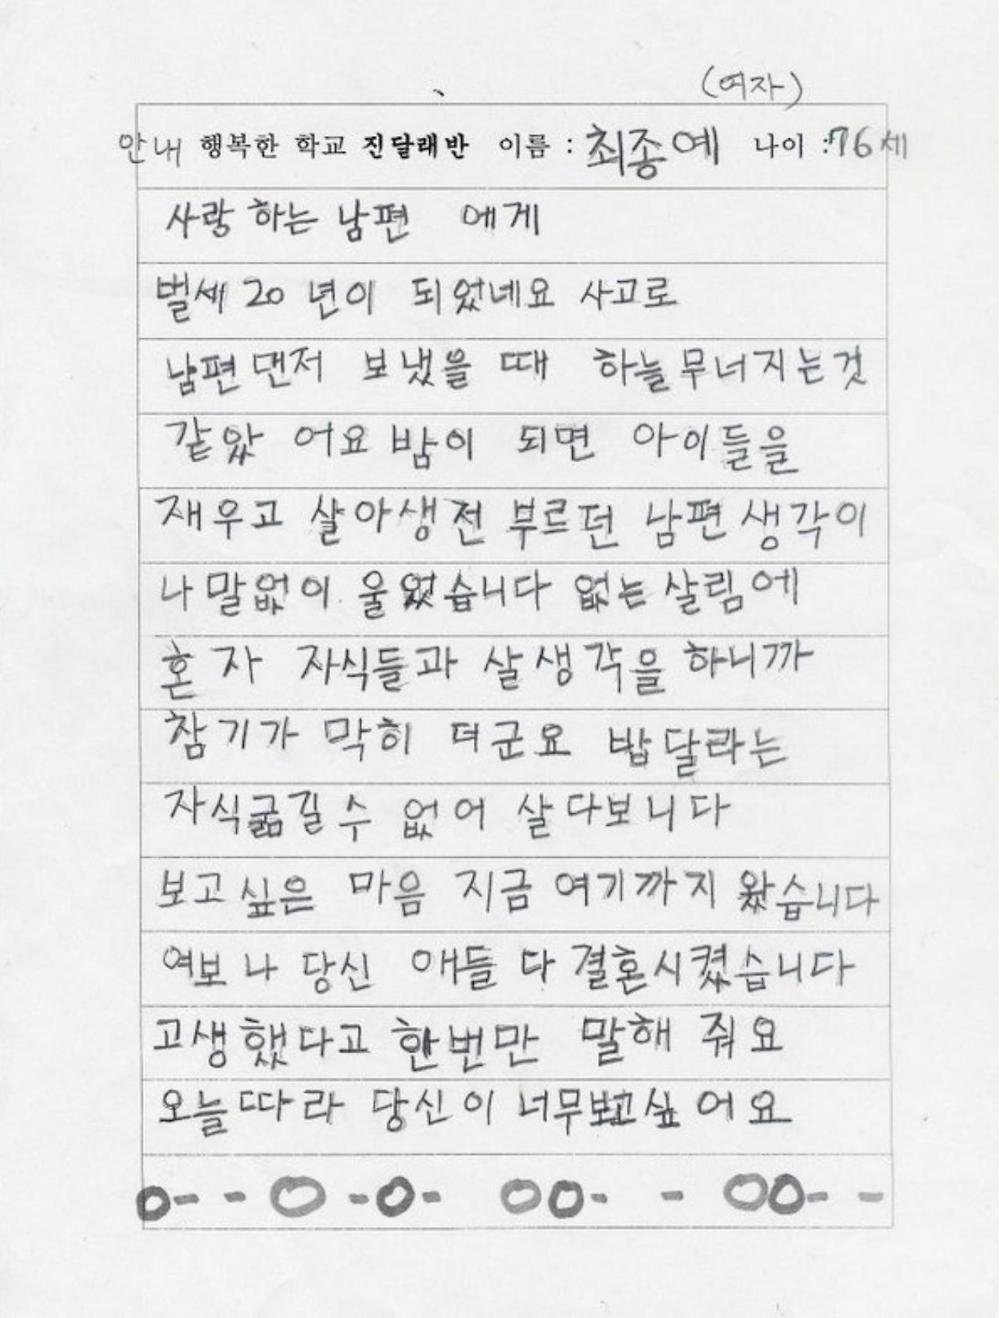 (여자)
안내 행복한 학교 진달래반 이름 : 최종예 나이 : 76세
사랑 하는 남편 에게
벌세 20 년이 되었네요 사고로
남편 먼저 보냈을 때 하늘 무너지는것
같았 어요 밤이 되면 아이들을
재우고 살아생전 부르던 남편 생각이
나 말없이 울었습니다 없는 살림에
혼자 자식들과 살생각을 하니까
참 기가 막히 더군요 밥달라는
자식굶길 수 없어 살다보니다
보고싶은 마음 지금 여기까지 왔습니다
여보 나 당신 애들 다 결혼시켰습니다
고생했다고 한번만 말해 줘요
오늘따라 당신이 너무보고싶어요
o- - o -o- oo- - oo- -